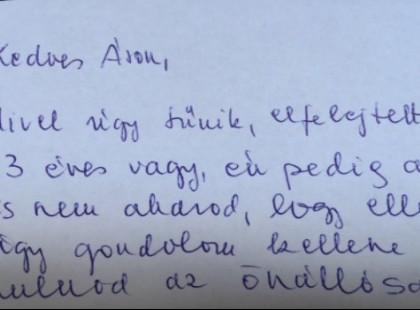 Kedves Áron,
Mivel úgy tűnik, elfelejtett
3 éves vagy, én pedig a
s nem akarod, hogy elle
úgy gondolom kellene
ulnod az önállósá